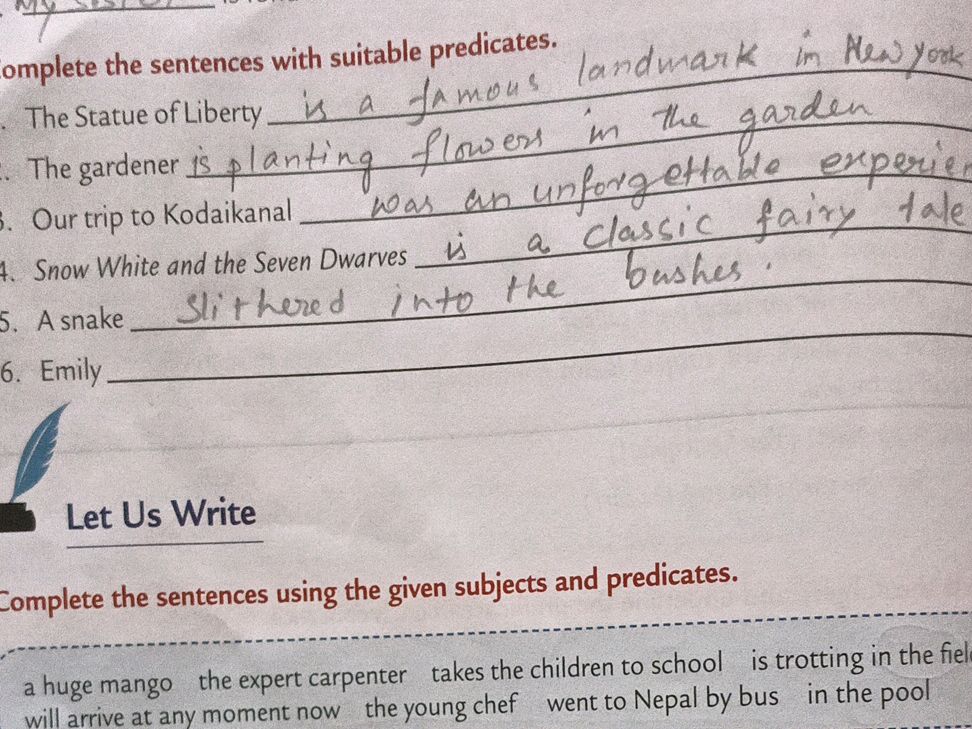 Complete the sentences with suitable predicates.
The Statue of Liberty is a famous landmark in New york
The gardener is planting flowers in the garden
3. Our trip to Kodaikanal was an unforgettable experien
4. Snow White and the Seven Dwarves is a classic fairy tale
5. A snake slithered into the bushes.
6. Emily
Let Us Write
Complete the sentences using the given subjects and predicates.
a huge mango the expert carpenter takes the children to school is trotting in the field
will arrive at any moment now the young chef went to Nepal by bus in the pool